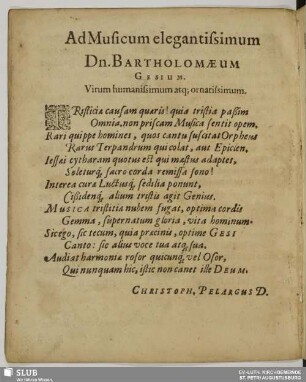 Ad Musicum elegantissimum
Dn. BARTHOLOMÆUM
GESIUM.
Virum humanissimum atq; ornatissimum.
TRisticiæ causam quæris? quia tristia passim
Omnia, non priscam Musica sentit opem,
Rari quippe homines, quos cantu suscitat Orpheus
Rarus Terpandrum qui colat, aut Epicien,
Iessæi cytharam quotus est qui mæstus adaptet,
Soleturq; sacro corda remissa sono?
Interea cura Luctusq; sedilia ponunt,
Cisidenq; alium tristis agit Genius.
MUSICA tristitiæ nubem fugat, optima cordis
Gemma, supernatum gloria, vita hominum.
Sic ego, sic tecum, quia præcinis, optime GESI
Canto: sic alius voce tua atq; sua.
Audiat harmoniæ rosor quicunq; vel Osor,
Qui nunquam hic, istic non canet ille DEUM.
CHRISTOPH. PELARGUS D.
SLUB
Wir führen Wissen.
EV.-LUTH. KIRCHGEMEINDE
ST. PETRI AUGUSTUSBURG